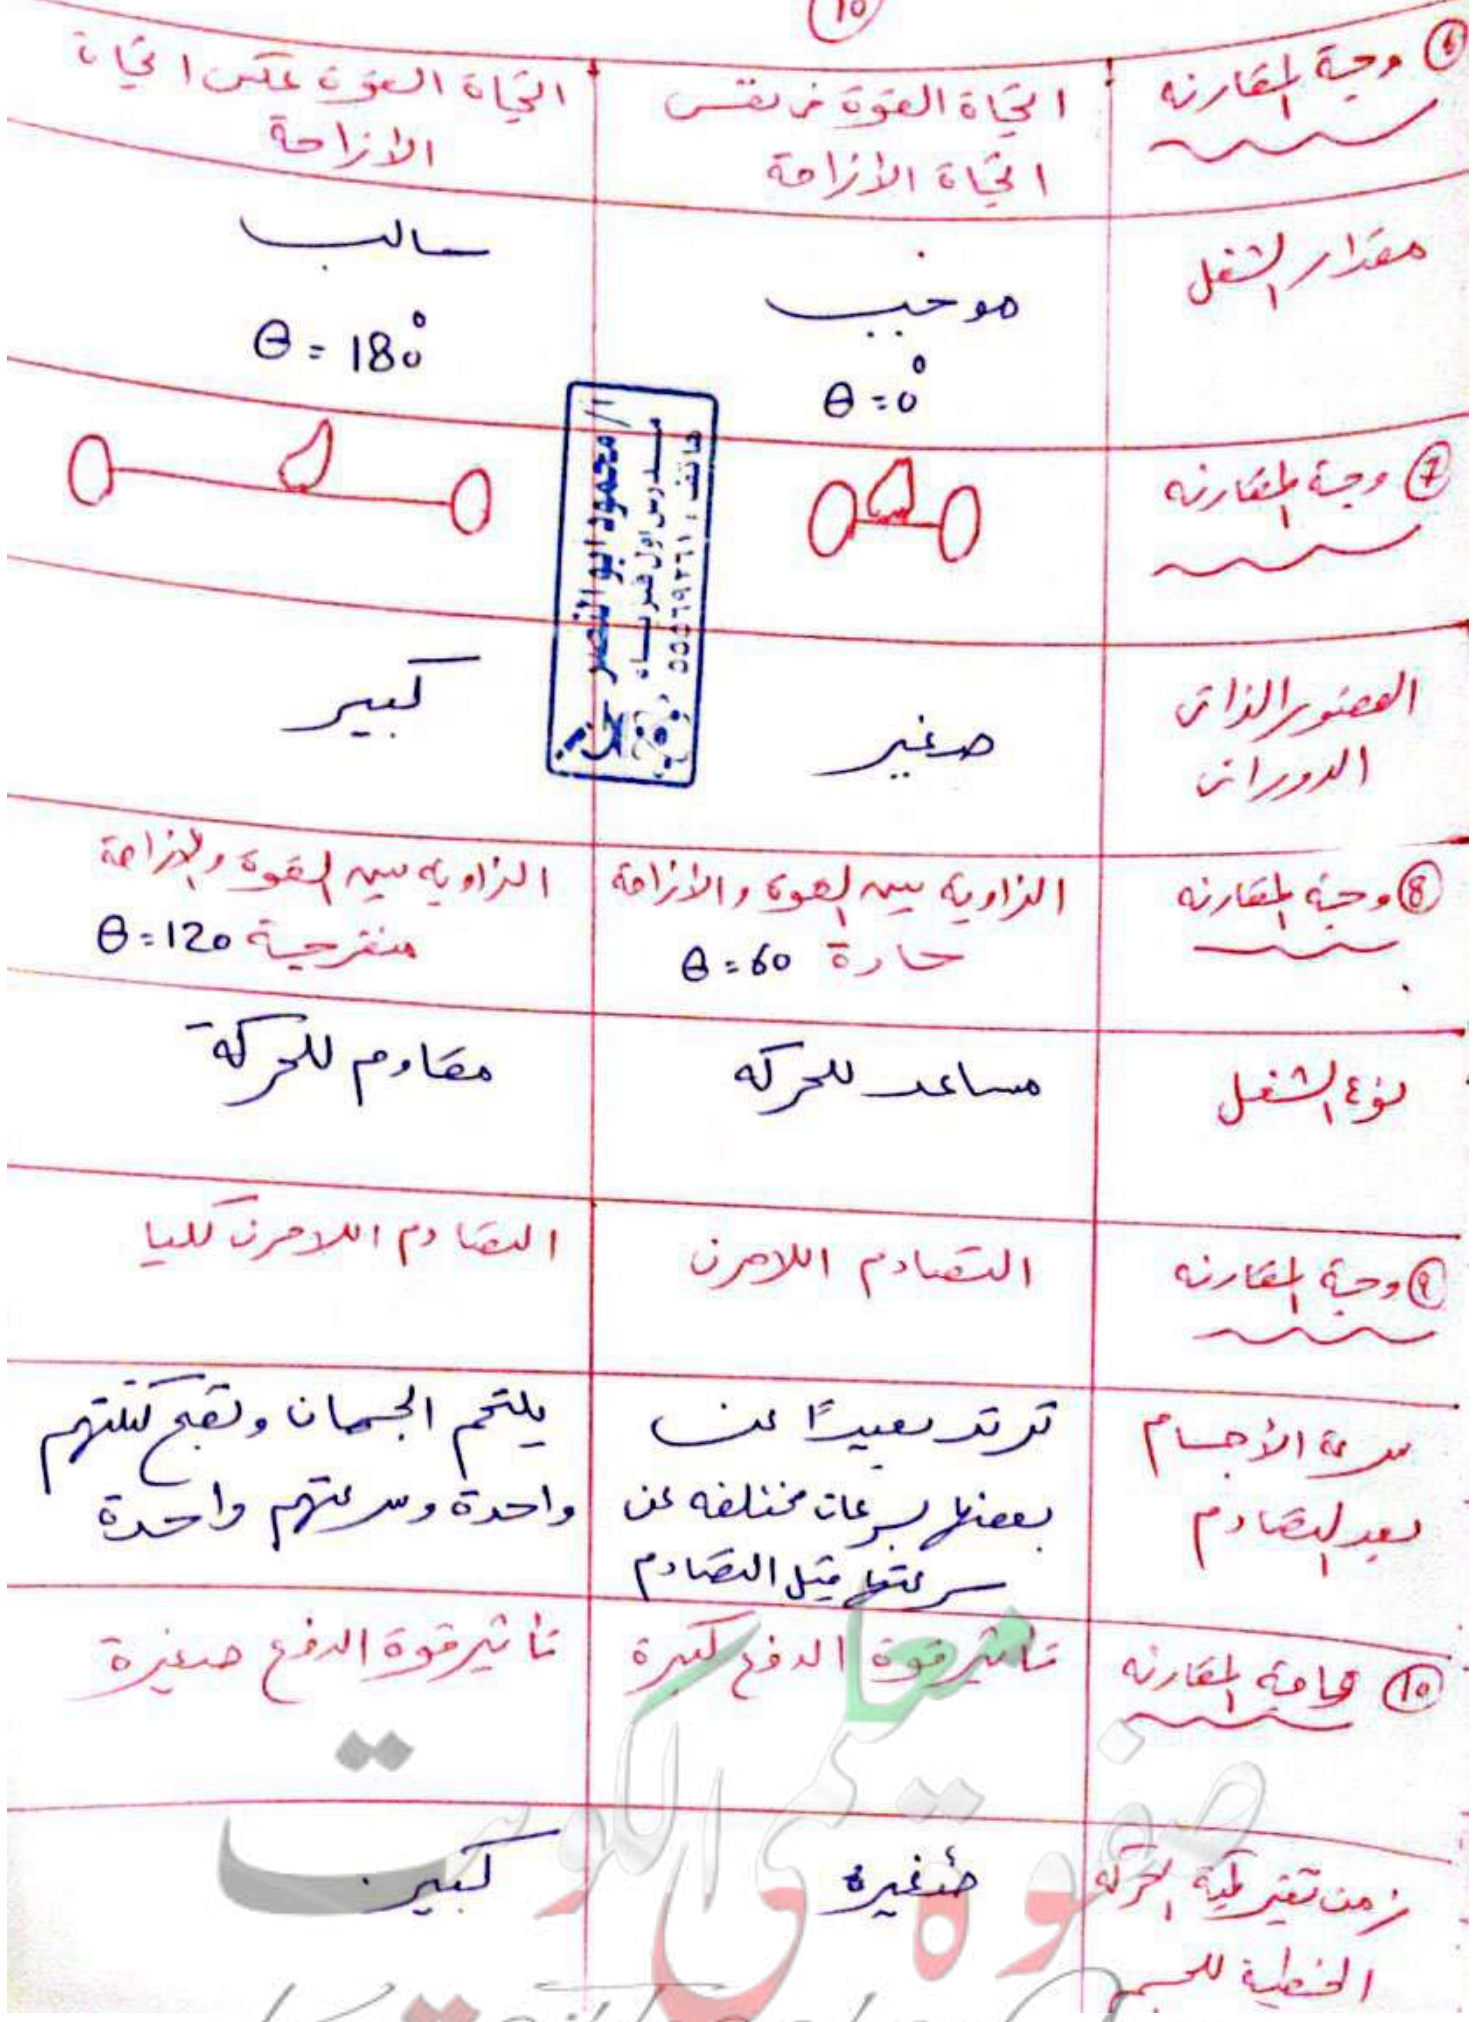 10
⑥ وجة المقارنه
اتجاة القوة فى نفس
اتجاة الازاحة
اتجاة القوة عكس اتجاة
الازاحة
مقدار الشغل
موجب
θ = 0°
سالب
θ = 180°
⑦ وجة المقارنه
القصور الذاتى
الدورانى
صغير
كبير
ا/ محمود ابو النصر
مدرس اول فيزياء
هاتف : ٥٥٥٦٩٢٦١
⑧ وجة المقارنه
الزاويه بين القوة والازاحة
حادة θ = 60
الزاويه بين القوة والازاحة
منفرجية θ = 120
نوع الشغل
مساعد للحركه
مقاوم للحركة
⑨ وجة المقارنه
التصادم اللامرن
التصادم اللامرن كليا
سرعة الأجسام
بعد التصادم
ترتد بعيدًا عن
بعضها بسرعات مختلفه عن
سرعتها قبل التصادم
يلتحم الجسمان وتصبح كتلتهم
واحدة وسرعتهم واحدة
⑩ المقارنه
تأثير قوة الدفع كبيرة
تأثير قوة الدفع صغيرة
زمن تغير كمية الحركه
الخطية للجسم
صغيره
كبير
صفوة معلمى الكويت